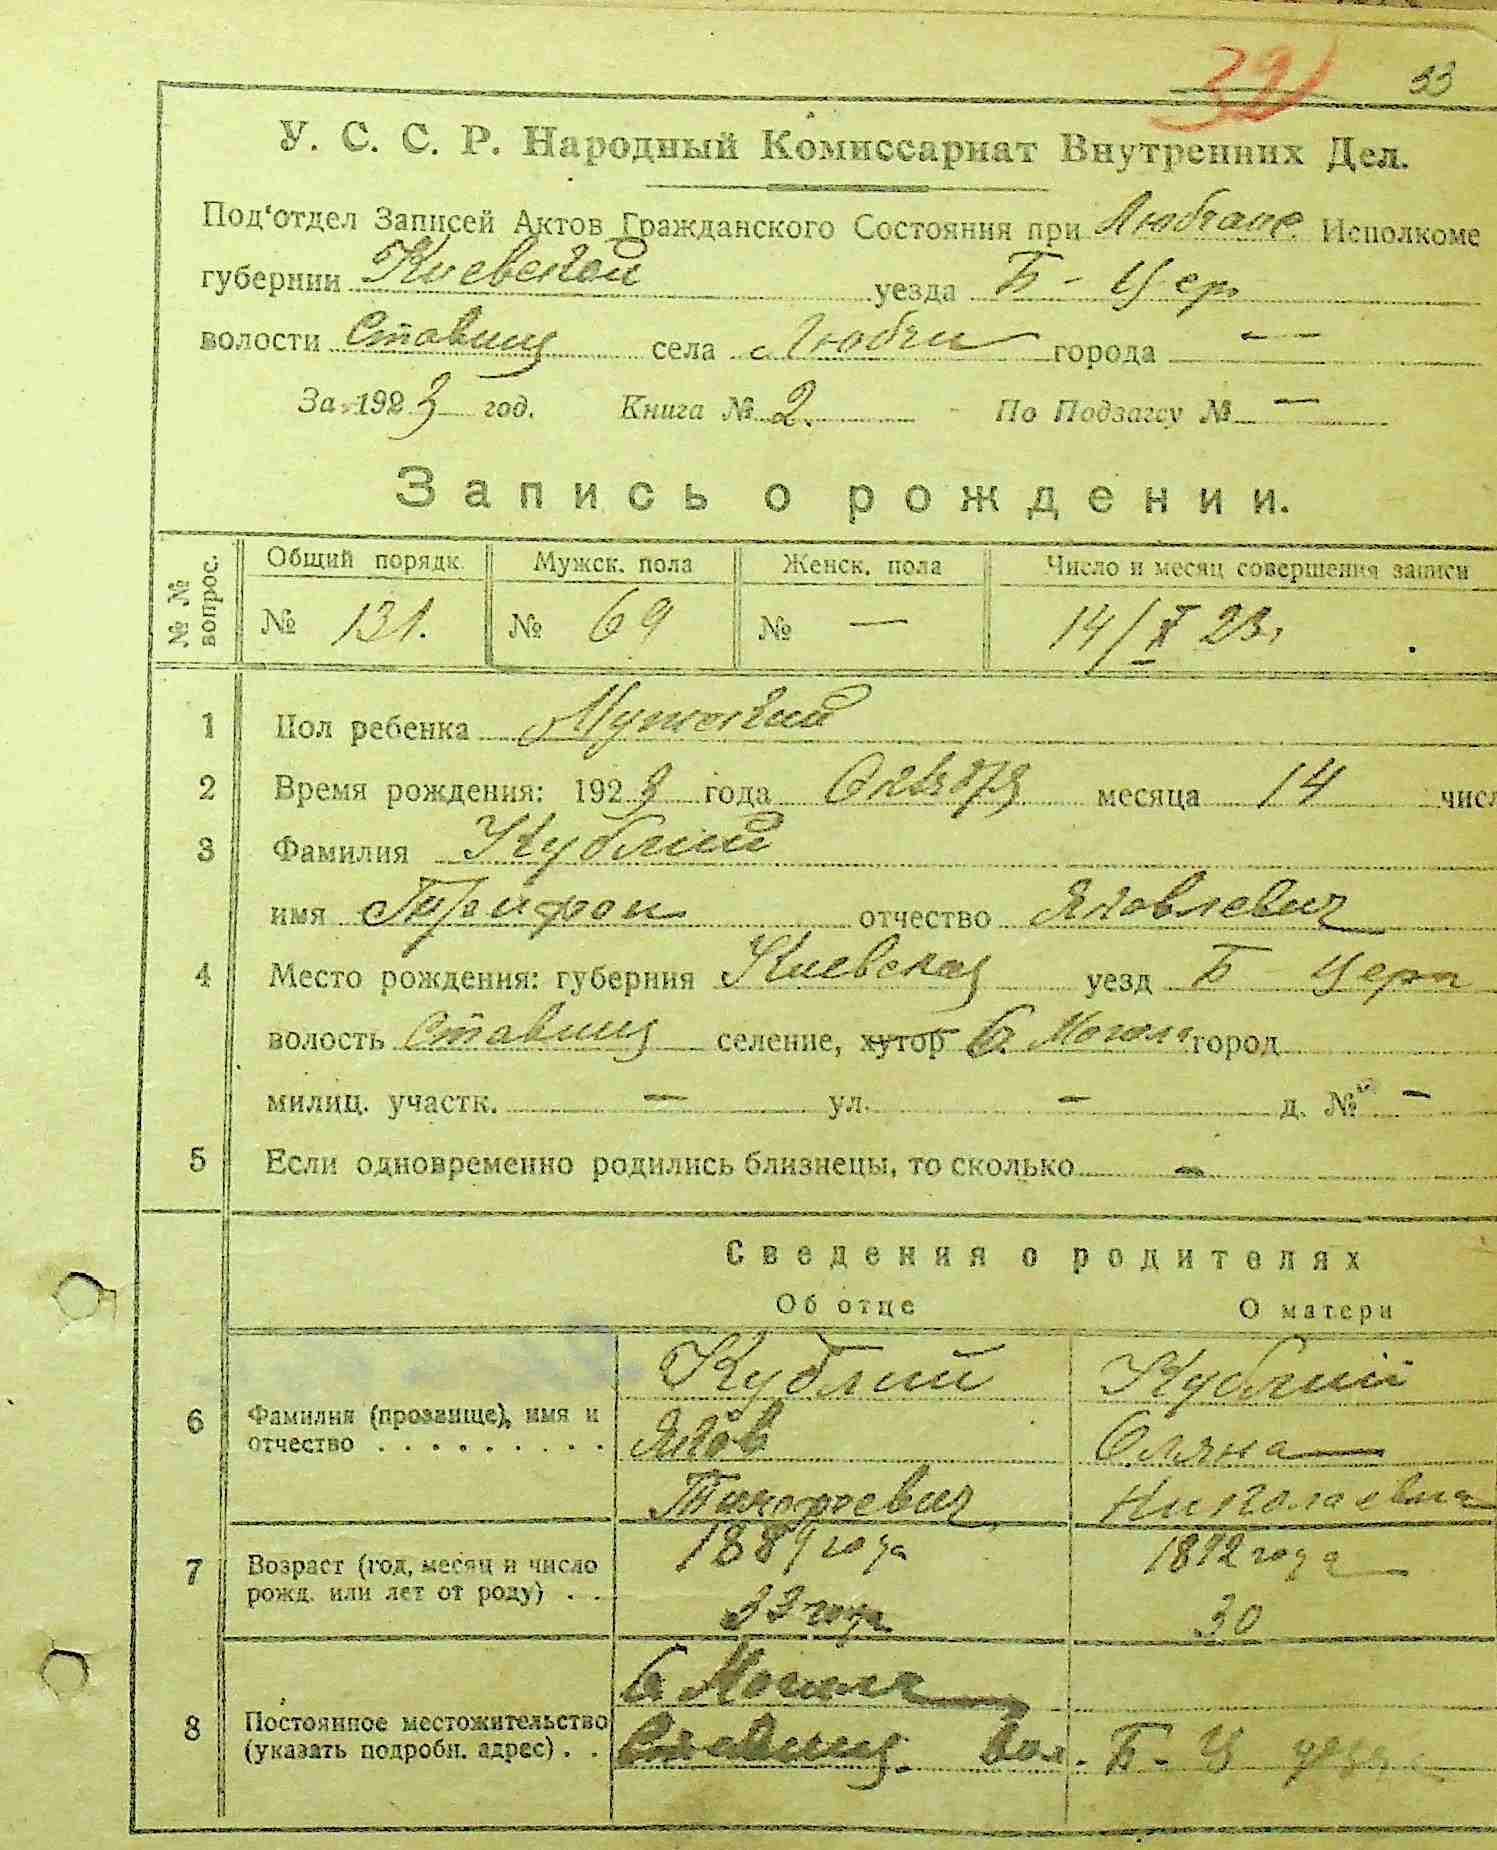 32 33
У. С. С. Р. Народный Комиссариат Внутренних Дел.
Под'отдел Записей Актов Гражданского Состояния при Исполкоме
губернии Киевской уезда Б - Цер.
волости Ставищ села города —
За 1923 год. Книга № 2. По Подзагсу № —
Запись о рождении.
№ № вопрос. Общий порядк. Мужск. пола Женск. пола Число и месяц совершения записи
№ 131. № 69 № — 14/X 23.
1 Пол ребенка Мужский
2 Время рождения: 1923 года Октября месяца 14 числ
3 Фамилия Кублий
имя Трифон отчество Яковлевич
4 Место рождения: губерния Киевская уезд Б Церк
волость Ставищ селение, хутор С. город
милиц. участк. — ул. — д. № —
5 Если одновременно родились близнецы, то сколько —
Сведения о родителях
Об отце О матери
Кублий Кублий
6 Фамилия (прозвище), имя и Яков Оляна
отчество . . . . . . . . . Тимофеевич Николаевна
7 Возраст (год, месяц и число 1889 года 1892 года
рожд. или лет от роду) . . 33 года 30
8 Постоянное местожительство
(указать подробн. адрес) . . Ставищ. вол. Б - Ц уезда